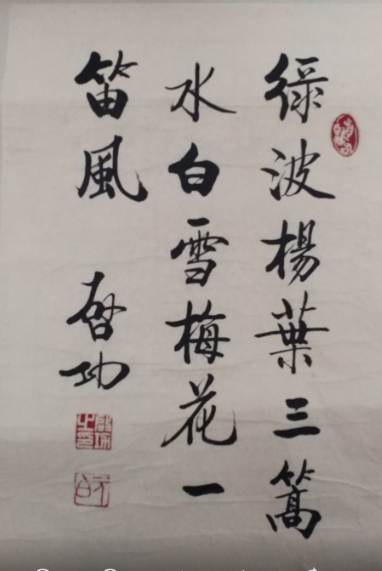 綠波楊葉三篙
水白雪梅花一
笛風
啓功